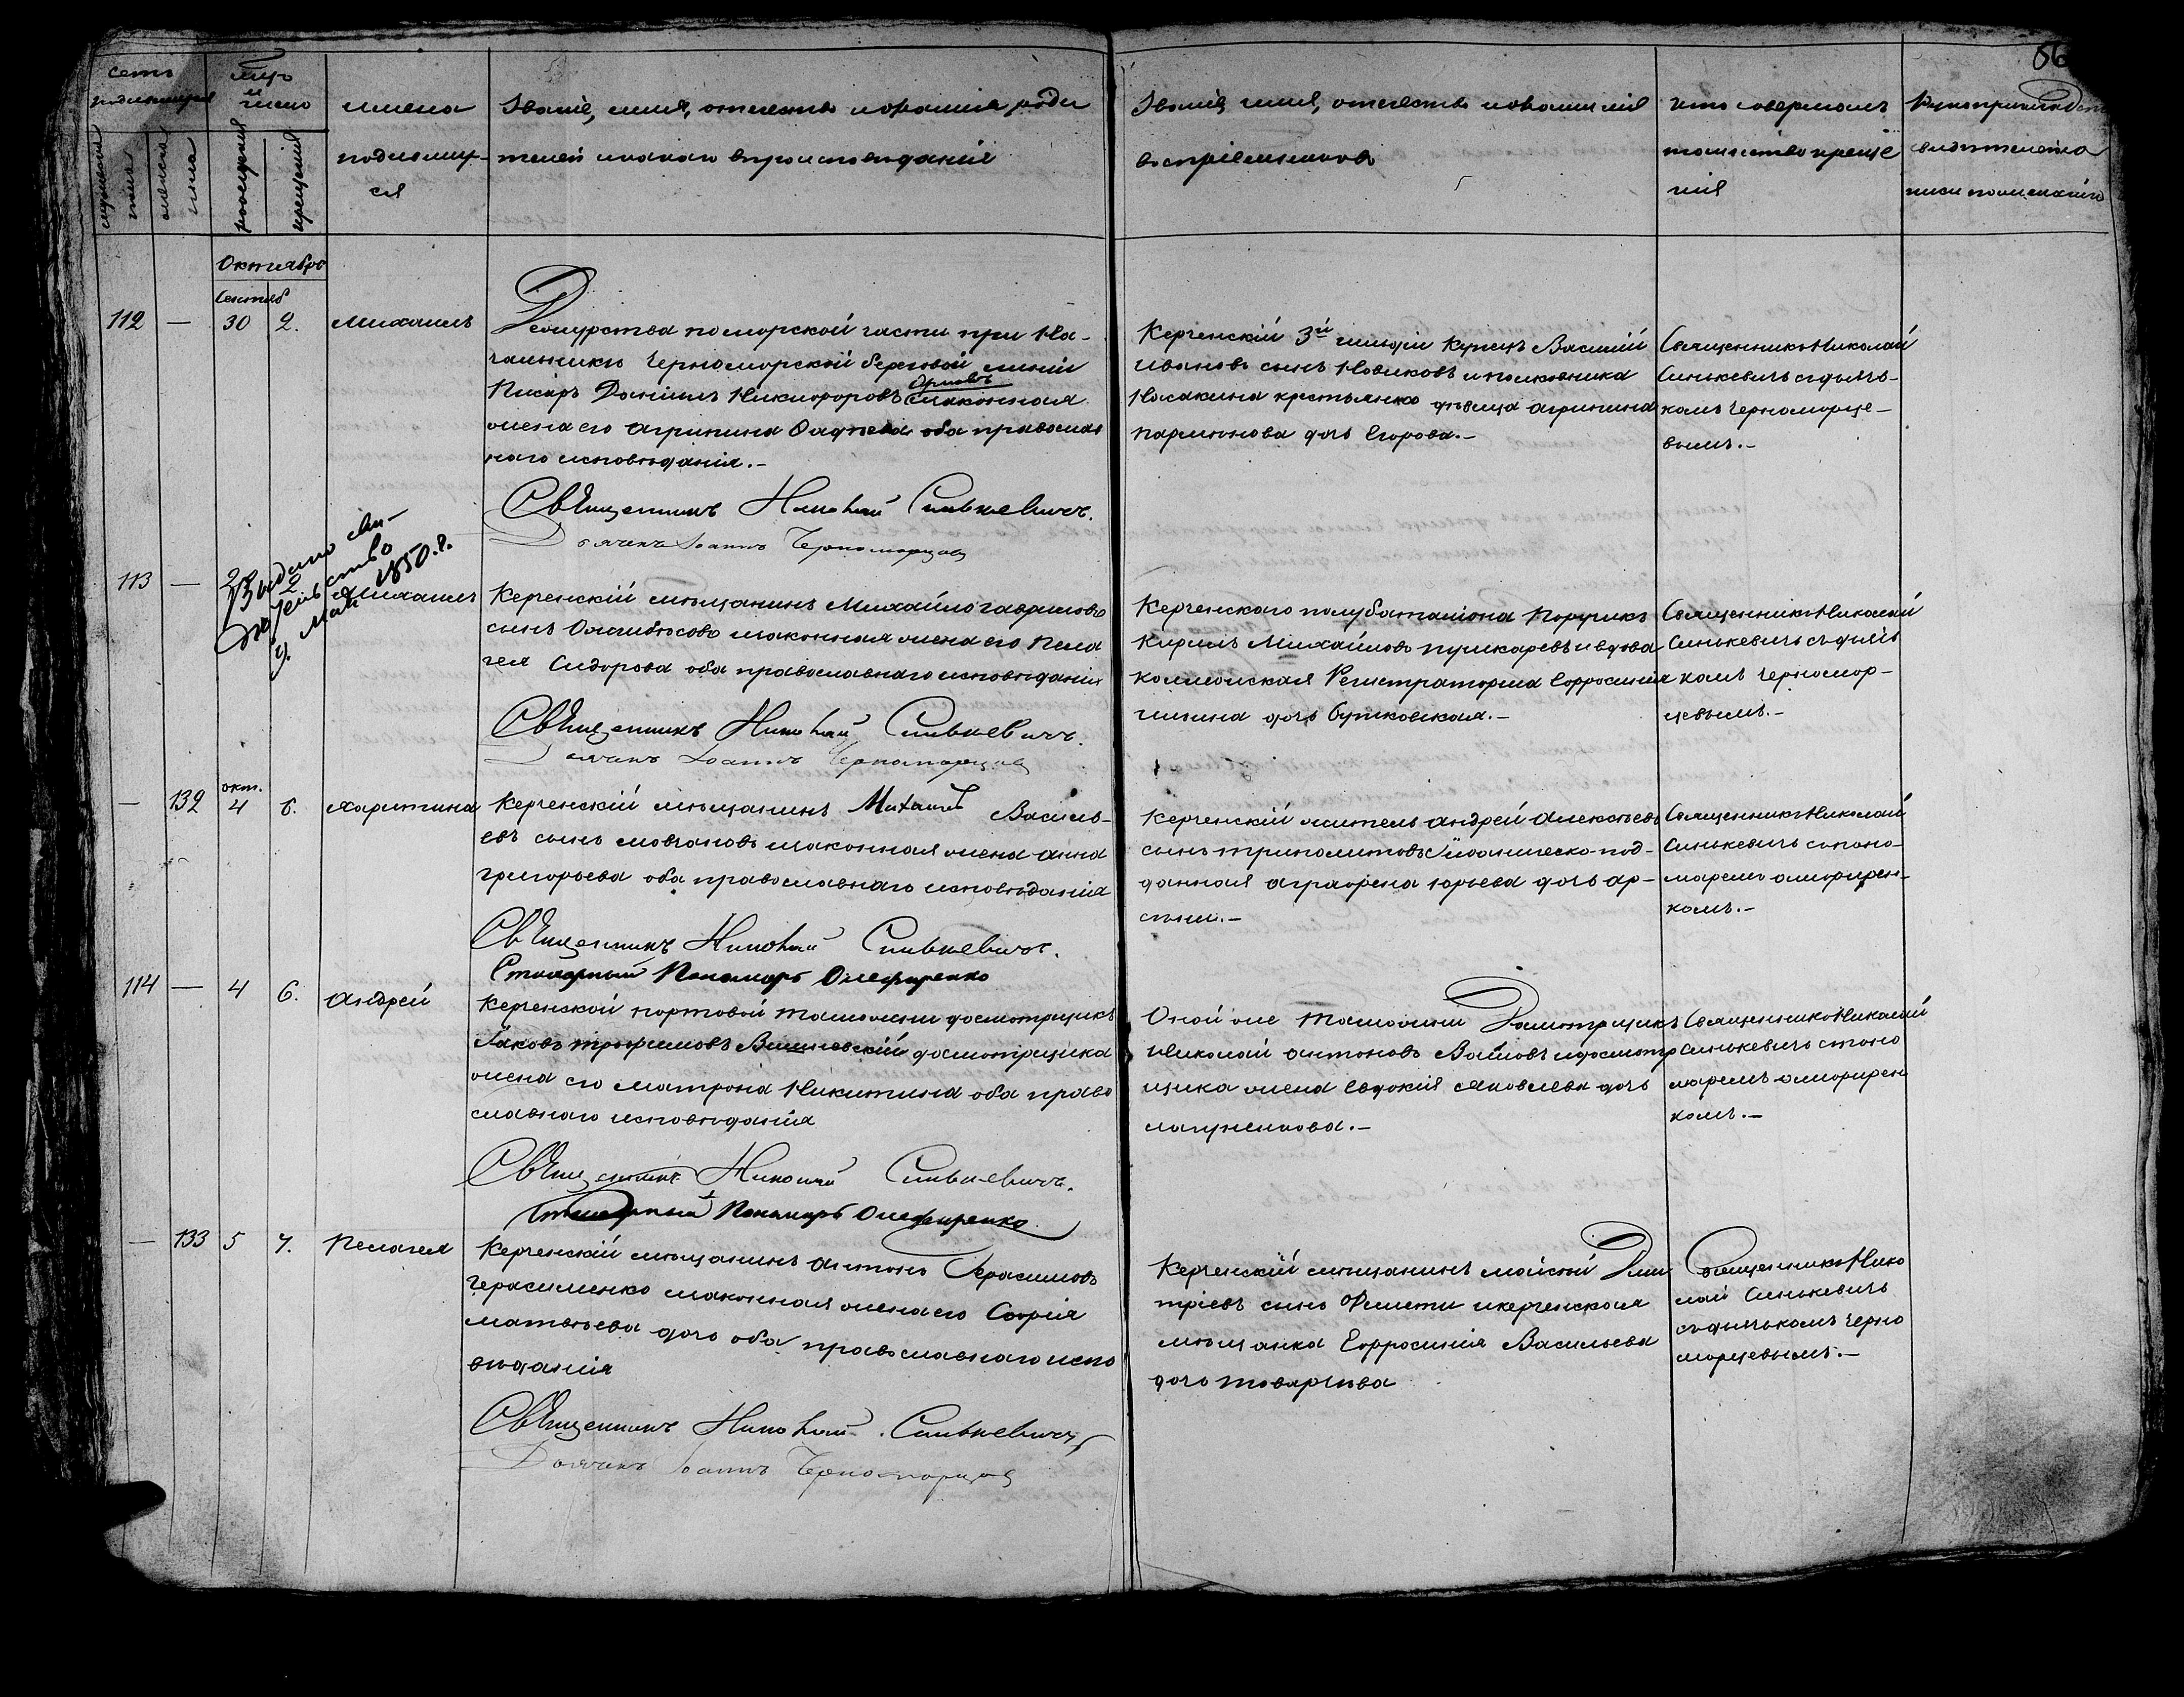 56
Счетъ родившихся
Мцъ и число
имена родившихся
Званіе, имя, отчество и фамилія роди
телей и какого вѣроисповѣданія
Званіе, имя, отчество и фамилія
воспріемниковъ
кто совершалъ
таинство креще
нія
Рукоприкладство
свидѣтелей за
писи по желанію
рожденія
крещенія
Октябрь
Сентяб
112 — 30 2. Михаилъ
Дежурства по морской части при На-
чальникѣ Черноморской береговой линіи
Писарь Даніилъ Никифоровъ Орловъ законная
жена его Агрипина Фадѣева оба православ
наго исповѣданія.-
Священникъ Николай Синькевичъ.
Дьячекъ Іоаннъ Черноморцовъ
Керченскій 3й гильдіи Купецъ Василій
Ивановъ сынъ Новиковъ и полковника
крестьянка дѣвица Агрипина
Парміонова дочь Егорова.-
Священникъ Николай
Синькевичъ съ дьяч-
комъ Черноморце-
вымъ.-
Выдано сви-
дѣтельство
9. Мая 1850.г.
113 — 2 Михаилъ
Керченскій мѣщанинъ Михайло Гавриловъ
сынъ законная жена его Пела
гея Сидорова оба православнаго исповѣданія
Священникъ Николай Синькевичъ.
Дьячекъ Іоаннъ Черноморцовъ
Керченскаго полубаталіона Поручикъ
Кирилъ Михайловъ Пушкаревъ и вдова
Колежская Регистраторша Ефросинія
Ильина дочь Бутковская.-
Священникъ Николай
Синькевичъ съ дьяч
комъ Черномор-
цевымъ.-
окт.
— 132 4 6. Харитина
Керченскій мѣщанинъ Михаилъ Василь-
евъ сынъ Молчановъ законная жена Анна
Григорьева оба православнаго исповѣданія
Священникъ Николай Синькевичъ.
Стихарный Пономарь Олефиренко
Керченскій житель Андрей Алексѣевъ
сынъ Триполитовъ Іоаническо-под-
данная Аграфена Юрьева дочь Ар-
Священникъ Николай
Синькевичъ съ поно-
маремъ Олифирен-
комъ.-
114 — 4 6. Андрей
Керченской портовой таможни досмотрщикъ
Яковъ Трофимовъ Василевскій досмотрщика
жена его Матрона Никитина оба право
славнаго исповѣданія
Священникъ Николай Синькевичъ.
Стихарный Пономарь Олефиренко
Оной же таможни Досмотрщикъ
Николай Антоновъ и досмотр
щика жена Евдокія Яковлева дочь
Священникъ Николай
Синькевичъ с поно
маремъ Олифирен
комъ.-
— 133 5 7. Пелагея
Керченскій мѣщанинъ Антонъ Герасимовъ
Герасименко законная жена его Софія
Матвѣева дочь оба православнаго испо
вѣданія
Священникъ Николай Синькевичъ
Дьячекъ Іоаннъ Черноморцовъ
Керченскій мѣщанинъ Дми
тріевъ сынъ и керченская
мѣщанка Ефросинія Васильева
дочь
Священникъ Нико
лай Синькевичъ
съ дьячькомъ Черно
морцевымъ.-